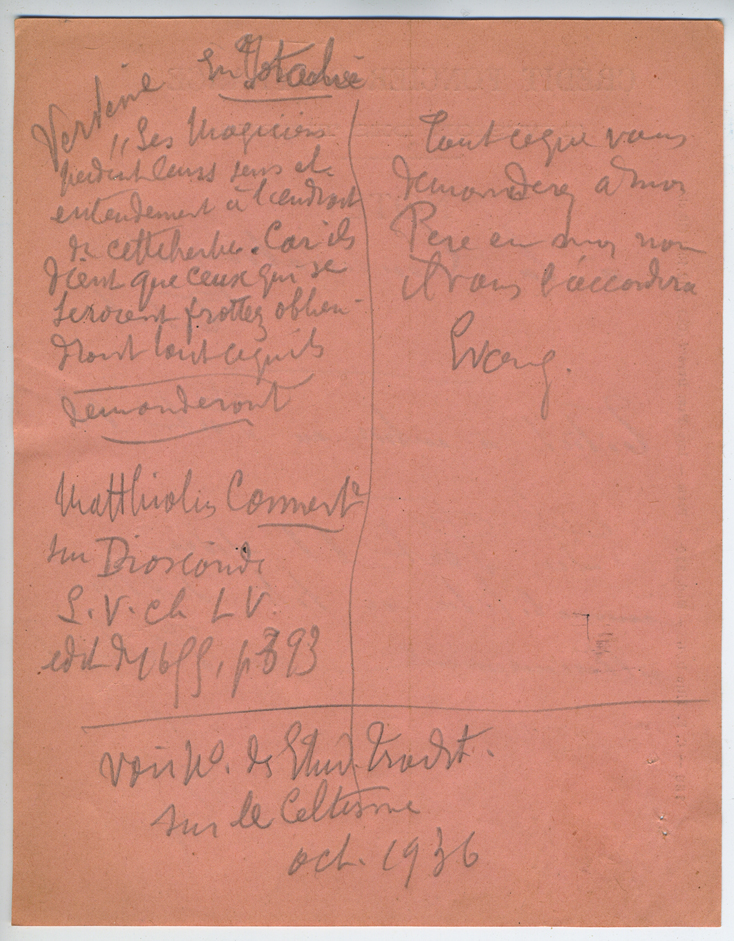 Verveine
"Les Magiciens
perdent leurs sens et
entendement à l'endroit
de cette herbe. Car ils
dient que ceux qui se
seroient frottez obtien-
dront tout ce qu'ils
demanderont
Matthiolis Comment
sur Dioscoride
L. V. ch LV.
edit de 1655, p 393
Tout ce que vous
demanderez à mon
Pere en mon nom
il vous l'accordera
Evang.
voir No. des Etud. Tradit.
sur le Celtisme
oct. 1936